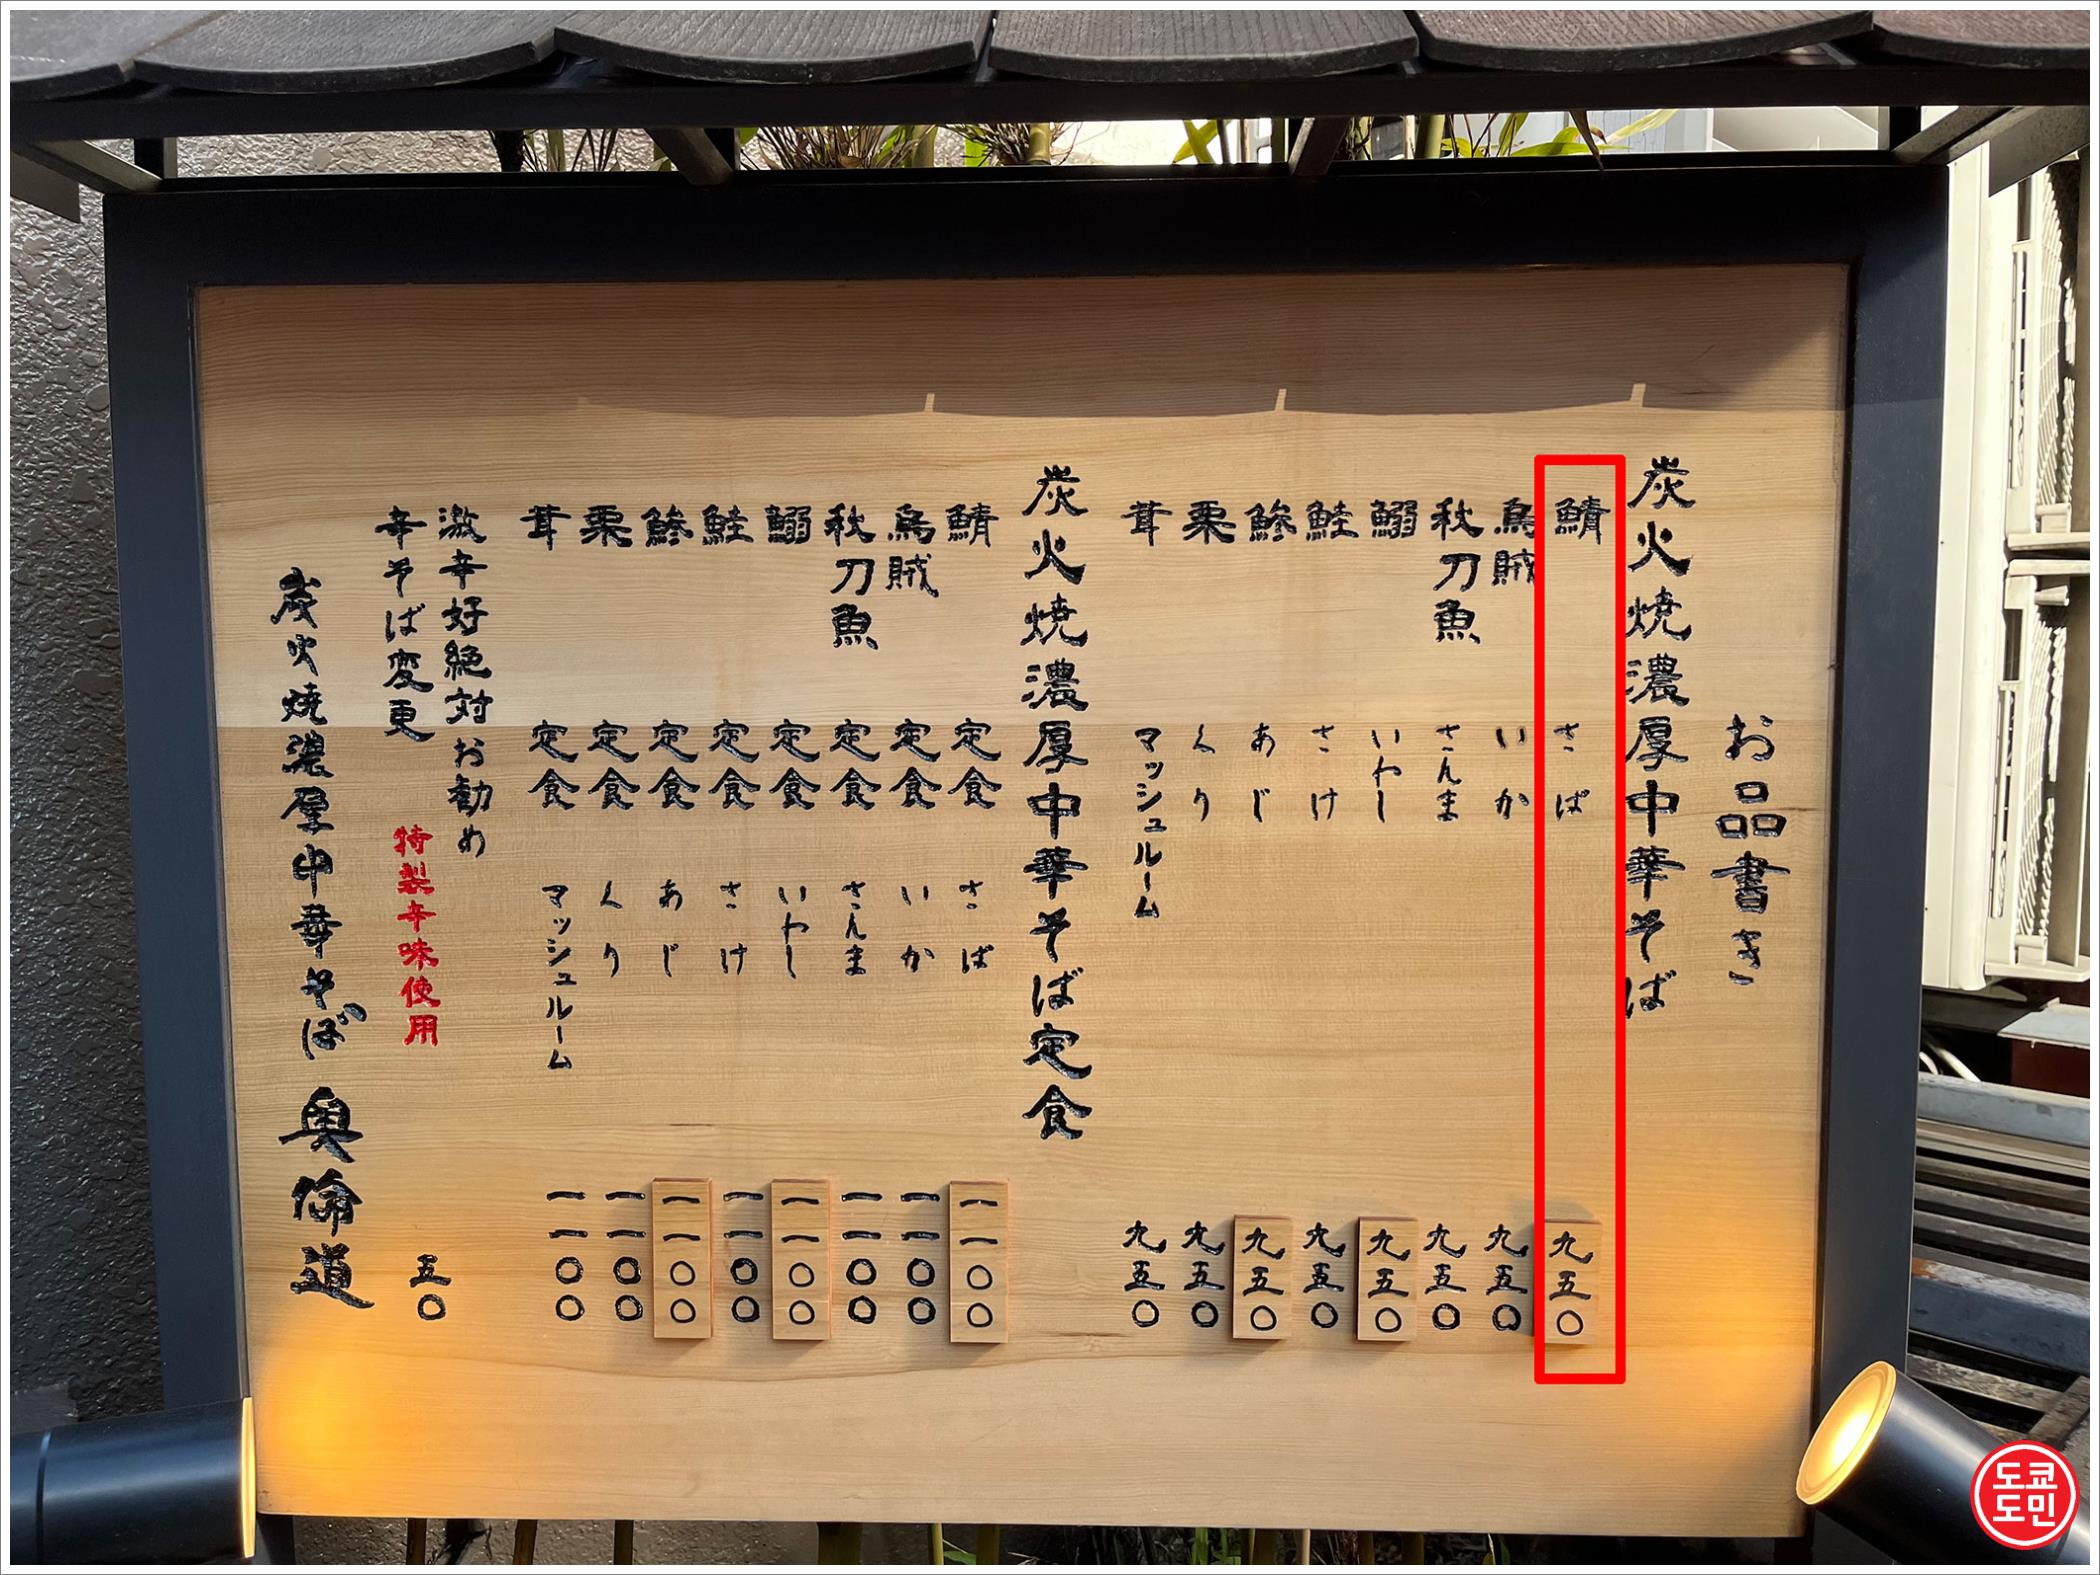 お品書き
炭火焼濃厚中華そば
鯖 さば 九五〇
烏賊 いか 九五〇
秋刀魚 さんま 九五〇
鰯 いわし 九五〇
鮭 さけ 九五〇
鯵 あじ 九五〇
栗 くり 九五〇
茸 マッシュルーム 九五〇
炭火焼濃厚中華そば定食
鯖 定食 さば 一一〇〇
烏賊 定食 いか 一一〇〇
秋刀魚 定食 さんま 一一〇〇
鰯 定食 いわし 一一〇〇
鮭 定食 さけ 一一〇〇
鯵 定食 あじ 一一〇〇
栗 定食 くり 一一〇〇
茸 定食 マッシュルーム 一一〇〇
激辛好絶対お勧め
辛そば変更 特製辛味使用 五〇
炭火焼濃厚中華そば 奥倫道
도쿄
도민